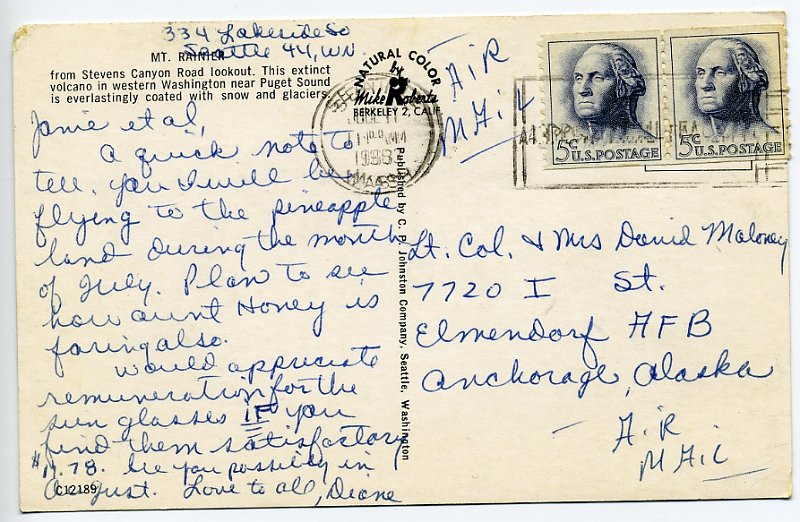 334 Lakeside So
Seattle 44, WN.
MT. RAINIER
from Stevens Canyon Road lookout. This extinct
volcano in western Washington near Puget Sound
is everlastingly coated with snow and glaciers.
NATURAL COLOR
by
Mike Roberts
BERKELEY 2, CALIF.
AiR
MAiL
5¢ U.S. POSTAGE
5¢ U.S. POSTAGE
Janie et al,
a quick note to
tell you I will be
flying to the pineapple
land during the month
of July. Plan to see
how aunt Honey is
faring also.
Would appreciate
remuneration for the
sun glasses IF you
find them satisfactory
$11.78. See you possibly in
August. Love to all, Diane
C12189
Published by C. P. Johnston Company, Seattle, Washington
Lt. Col. & Mrs David Maloney
7720 I St.
Elmendorf AFB
Anchorage, Alaska
- AiR
MAiL